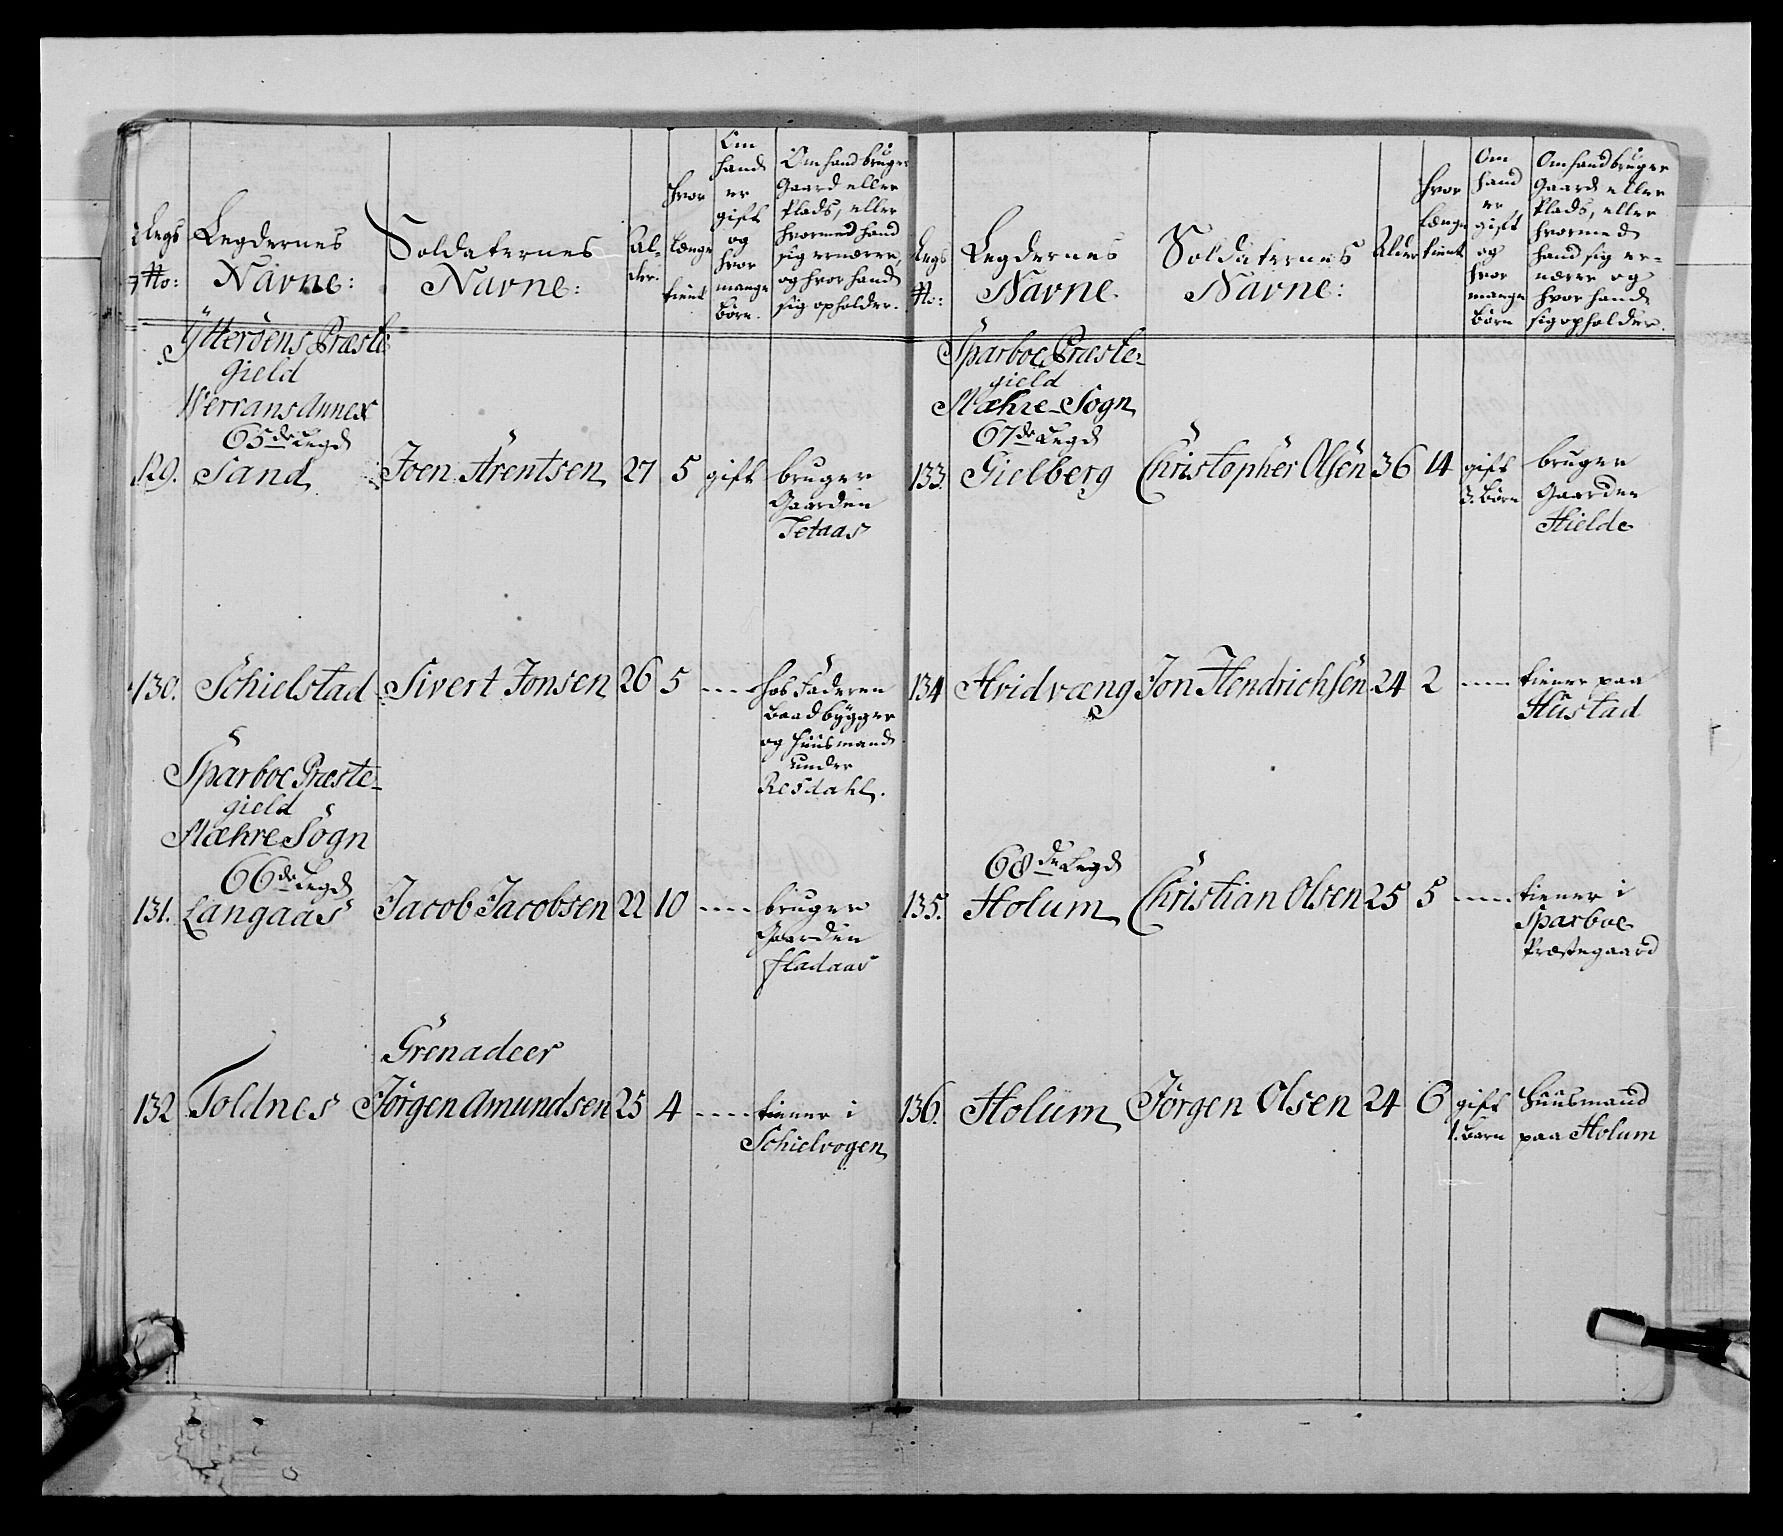 Legs
No:
Legdernes
Navne:
Soldaternes
Navne:
Al-
der.
hvor
længe
tient
Om
hand
er
gift
og
hvor
mange
börn.
Om hand bruger
Gaard eller
Plads, eller
hvormed hand
sig ernærer,
og hvor hand
sig opholder.
Ytterõens Præste
gield
Werrans Annex
65de Legd
129. Sand Joen Arentsen 27 5 gift bruger
Gaarden
Tetaas
130. Schielstad Sivert Jonsen 26 5 ---- hos Faderen
Baadbygger
og Huusmand
under
Resdahl.
Sparboe Præste-
gield
Mæhre Sogn
66de Legd
131. Langaas Jacob Jacobsen 22 10 ---- bruger
Gaarden
fladaas
Grenadeer
132 Toldnes Jørgen Amundsen 25 4 ---- tiener i
Schielvogen
Legs
No:
Legdernes
Navne
Soldaternes
Navne:
Alder
hvor
længe
tient
Om
hand
er
gift
og
hvor
mange
Börn
Om hand bruger
Gaard eller
Plads, eller
hvormed
hand sig er-
nærer og
hvor hand
sig opholder.
Sparboe Præste-
gield
Mæhre-Sogn
67de Legd
133. Gielberg Christopher Olsen 36 14 gift
3. Börn
bruger
Gaarden
Hielde
134 Hridvæng Jon Hendrichsen 24 2 ---- tiener paa
Hustad
68de Legd
135. Holum Christian Olsen 25 5 ---- tiener i
Sparboe
Præstegaard
136. Holum Jørgen Olsen 24 6 gift
1. Barn
Huusmand
paa Holum